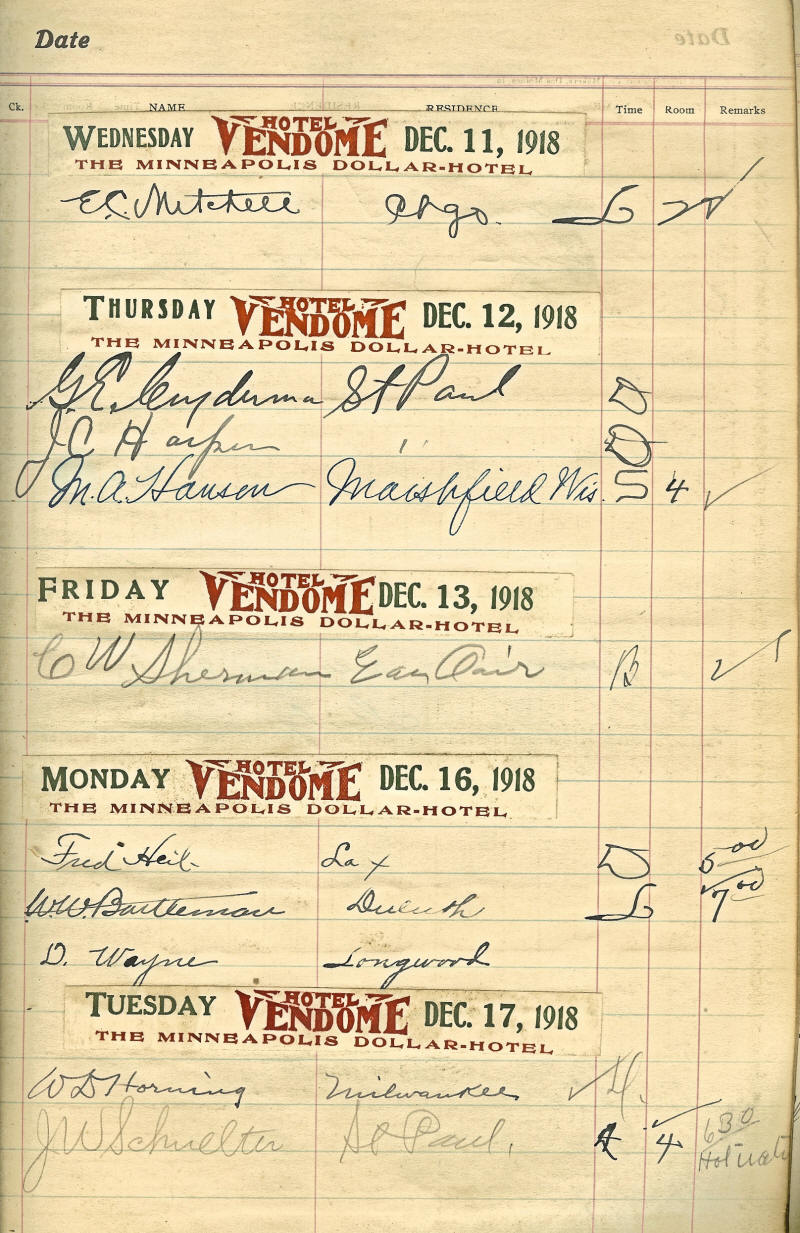 Date
Ck. NAME RESIDENCE Time Room Remarks
WEDNESDAY HOTEL VENDOME DEC. 11, 1918
THE MINNEAPOLIS DOLLAR-HOTEL
E.C. Mitchell Chgo. L
THURSDAY HOTEL VENDOME DEC. 12, 1918
THE MINNEAPOLIS DOLLAR-HOTEL
G.E. St Paul D
J C Harper " D
M.A. Hansen Marshfield Wis. 4 ✓
FRIDAY HOTEL VENDOME DEC. 13, 1918
THE MINNEAPOLIS DOLLAR-HOTEL
C W Sherman Eau Clair B ✓
MONDAY HOTEL VENDOME DEC. 16, 1918
THE MINNEAPOLIS DOLLAR-HOTEL
Fred Heil La x D 5 00
W.W. Bartleman Duluth L 7 00
D. Wayne Longwood
TUESDAY HOTEL VENDOME DEC. 17, 1918
THE MINNEAPOLIS DOLLAR-HOTEL
W D Horning Milwaukee ✓
J W St Paul. 4 630